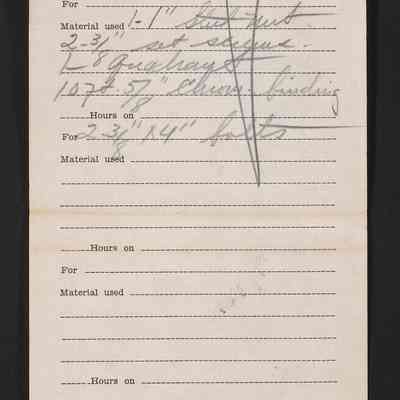 For
Material used 1-1" Stud Nut
2-3/8" set screws.
1-8"
107 ft. 5/8" Chrome binding
Hours on
For 2-3/8" x 4" bolts
Material used
Hours on
For
Material used
Hours on